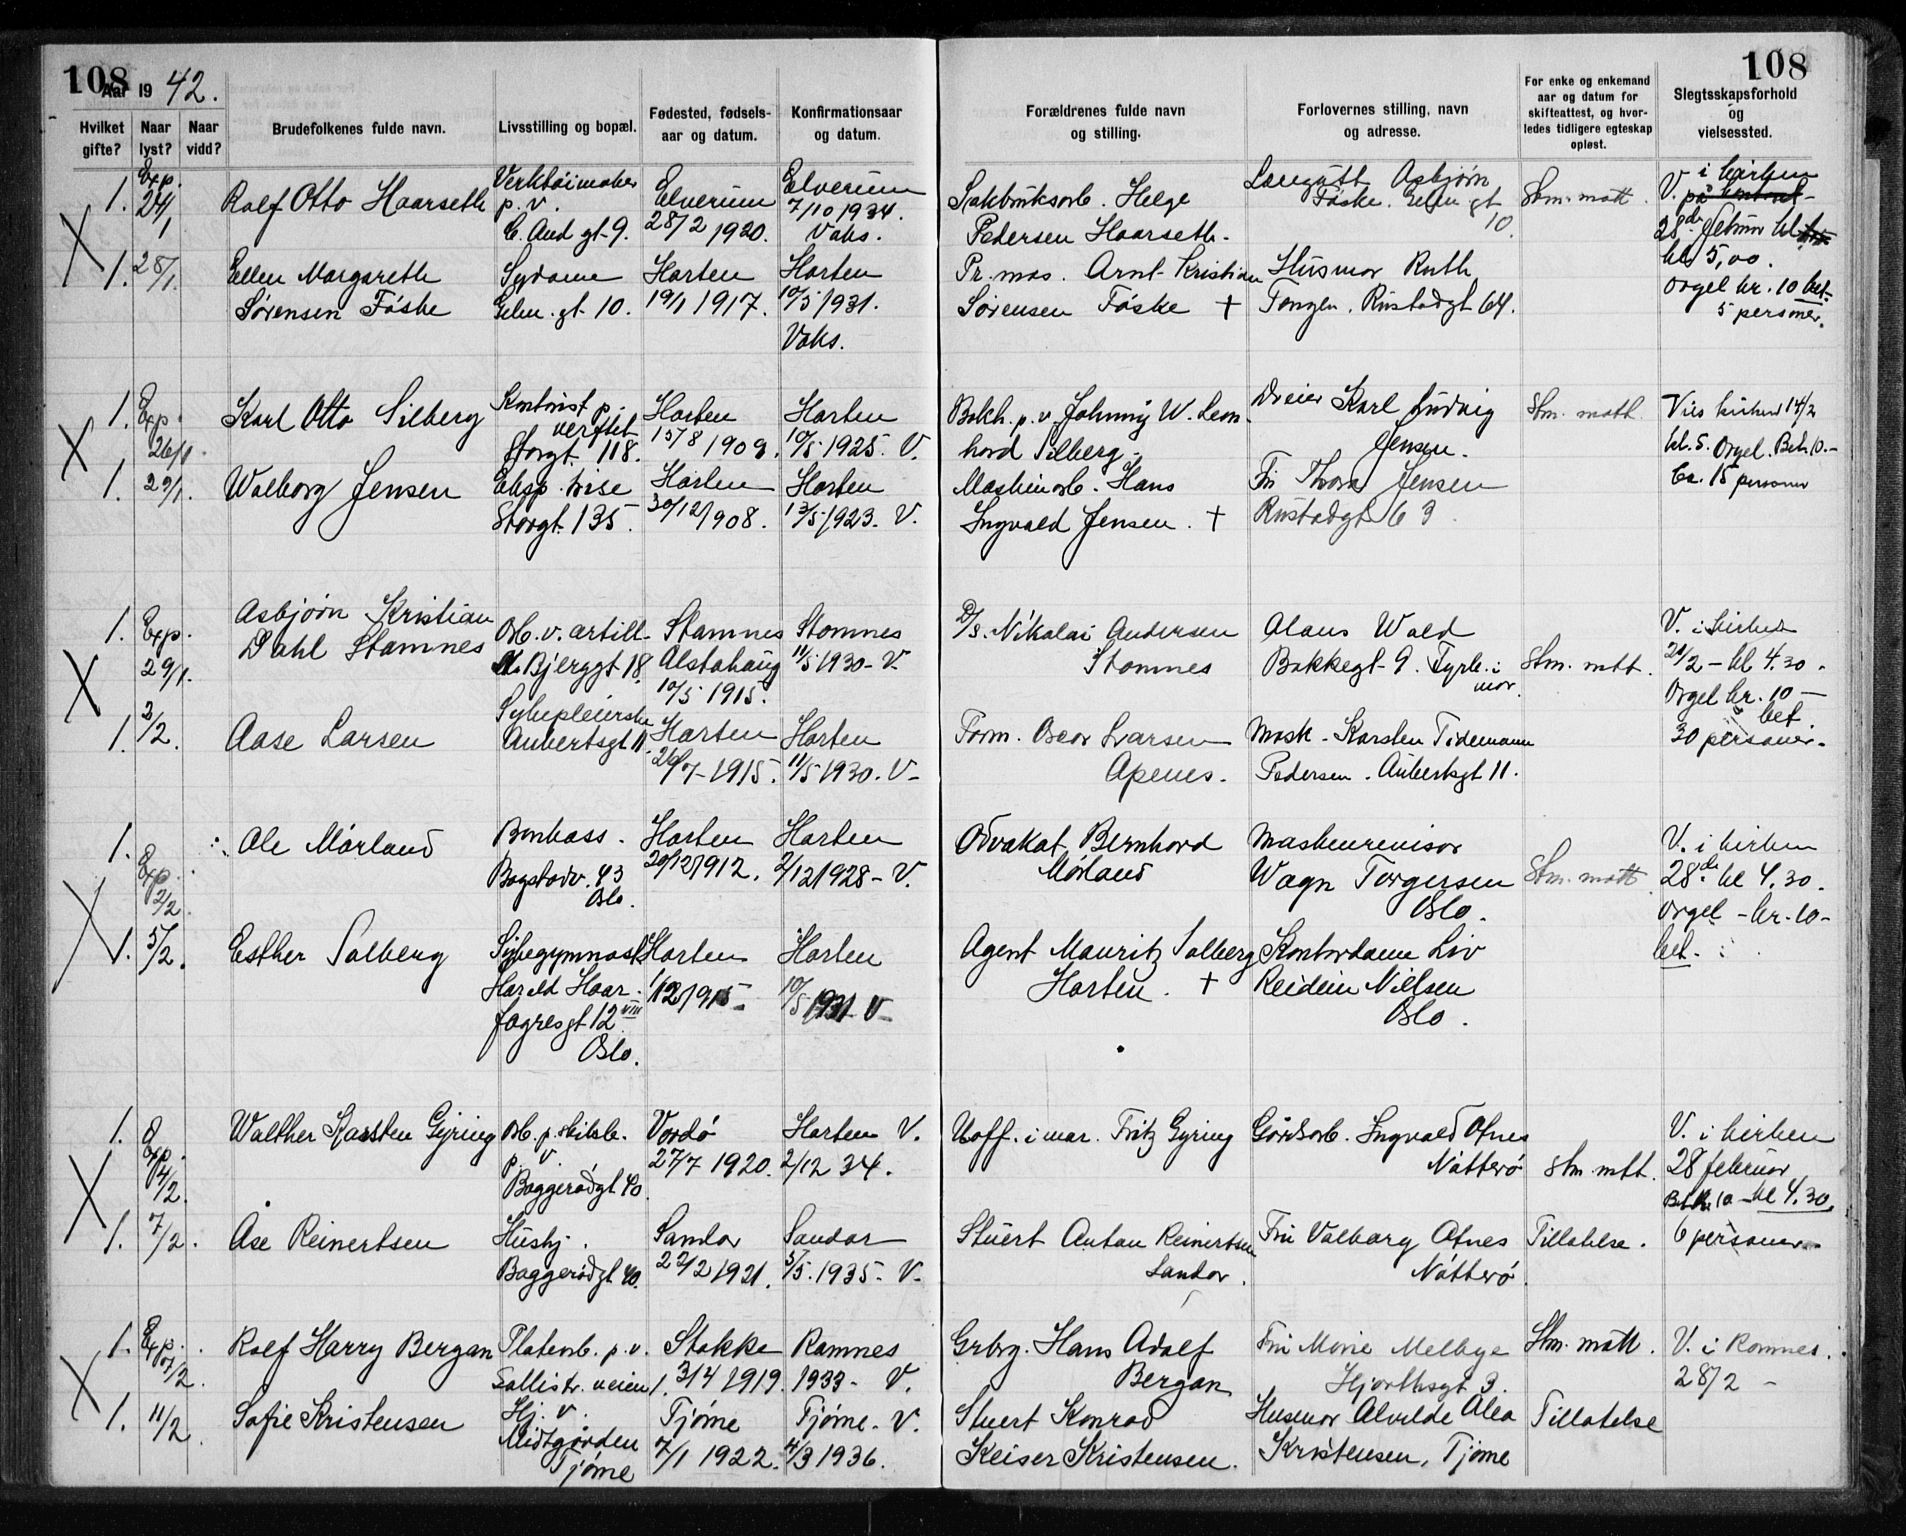 108
Aar 1942.
Hvilket gifte?
Naar lyst?
Naar vidd?
Brudefolkenes fulde navn.
Livsstilling og bopæl.
Fødested, fødsels-
aar og datum.
Konfirmationsaar
og datum.
1. Exp. 24/1
Rolf Otto Haarseth
Verktöimaker
p. v.
C. And gt. 9.
Elverum
28/2 1920.
Elverum
7/10 1934.
Vaks.
1. 28/1.
Ellen Margareth
Sørensen Føske
Sydame
gt. 10.
Horten
19/1 1917.
Horten
10/5 1931.
Vaks.
1. Exp. 26/1.
Karl Otto Silberg
Kontorist p.
verftet
Storgt. 118.
Horten
15/8 1909.
Horten
10/5 1925. V.
1. 29/1.
Walborg Jensen
Eksp. trise
Storgt. 135.
Horten
30/12 1908.
Horten
13/5 1923. V.
1. Exp. 29/1.
Asbjørn Kristian
Dahl Stamnes
Arb. v. artill.
Bjerggt 18.
Stamnes
Alstahaug
10/5 1915.
Stamnes
11/5 1930 - V.
1. 2/2.
Aase Larsen
Sykepleierske
Aubertsgt 11.
Horten
26/7 - 1915.
Horten
11/5 1930. V-
1. Exp. 2/2.
Ole Mørland
Bankass.
Bogstadv. 43
Oslo.
Horten
20/12 1912.
Horten
2/12 1928 - V.
1. 5/2.
Esther Solberg
Sykegymnast
Harald Haar-
fagresgt 12 VIII
Oslo.
Horten
1/12 1915
Horten
10/5 1931 V-
1. Exp. 4/2.
Walther Karsten Gyring
Arb. p.
p. v.
Baggerødgt 40.
Vardö
27/7 1920.
Horten V.
2/12 34.
1. 7/2.
Åse Reinertsen
Hushj.
Baggerødgt 40.
Sandar
22/2 1921.
Sandar
5/5. 1935 - V.
1. Exp. 10/2.
Rolf Harry Bergan
Platearb. p. v.
Sollistr. veien 1.
Stokke
3/4 1919.
Ramnes
1933 - V.
1. 11/2.
Sofie Kristensen
Hj. v.
Midtgården
Tjöme
Tjöme
7/1 1922.
Tjöme. V.
4/3 1936.
108
Forældrenes fulde navn
og stilling.
Forlovernes stilling, navn
og adresse.
For enke og enkemand
aar og datum for
skifteattest, og hvor-
ledes tidligere egteskap
opløst.
Slegtsskapsforhold
og
vielsessted.
Sakbruksarb. Helge
Pedersen Haarseth.
Asbjørn
Föske. gt
10.
Stm. mott.
V. i kirken
på kontoret
28de februar kl.
kl. 5,00.
Orgel kr. 10 bet.
5 personer.
Pr. mas. Arnt Kristian
Sørensen Föske +
Husmor Ruth
Tangen. Rustadgt 64.
Bokh. p. v. Johnny W. Leon-
hard Silberg.
Dreier Karl Ludvig
Jensen.
Stm. mott.
Vies kirken 14/2
kl. 5. Orgel. Bet. 10.-
Ca. 15 personer
Maskinarb. Hans
Ingvald Jensen. +
Fru Thora Jensen
Rustadgt 63
D/s. Nikolai Andersen
Stamnes
Alans Wold
Bakkegt. 9. Fyrb. i
mar.
Stm. mott.
V. i kirken
21/2 - kl 4.30.
Orgel kr. 10 -
bet.
30 personer.
Form. Oscar Larsen
Apenes.
Mask. Karsten Tidemann
Pedersen. Aubertsgt 11.
Advokat Bernhard
Mörland
Maskinrevisor
Wagn Torgersen
Oslo.
Stm. mott.
V. i kirken
28de kl 4.30.
Orgel - kr. 10 -
bet.
Agent Mauritz Solberg
Horten. +
Kontordame Liv
Reidun Nilsen
Oslo.
Uoff. i mar. Fritz Gyring
Ingvald Ofnes
Nötterö
Stm. mott.
V. i kirken
28 februar
Bet. 10 - kl 4.30.
6 personer.
Stuert Anton Reinertsen
Sandar.
Fru Valborg Ofnes
Nötterö.
Tillatelse.
Grbrg. Hans Adolf
Bergan
Fru Marie Melbye
Hjorthsgt 3.
Stm. mott.
V. i Ramnes.
28/2 -
Stuert Konrad
Keiser Kristensen.
Husmor Alvilde Alea
Kristensen, Tjöme
Tillatelse